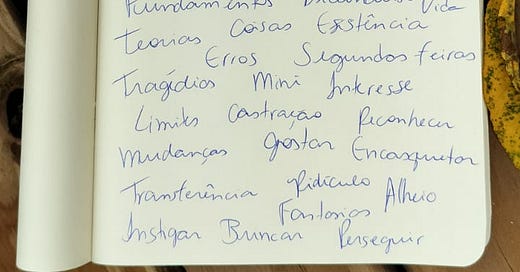 Fundamentos Vida
Teorias Coisas Existência
Erros Segundas feiras
Tragédias Mini Interesse
Limites Castração Reconhecer
Mudanças Gostar Encasquetar
Transferência Ridículo Alheio
Fantasias
Instigar Buncar Perseguir